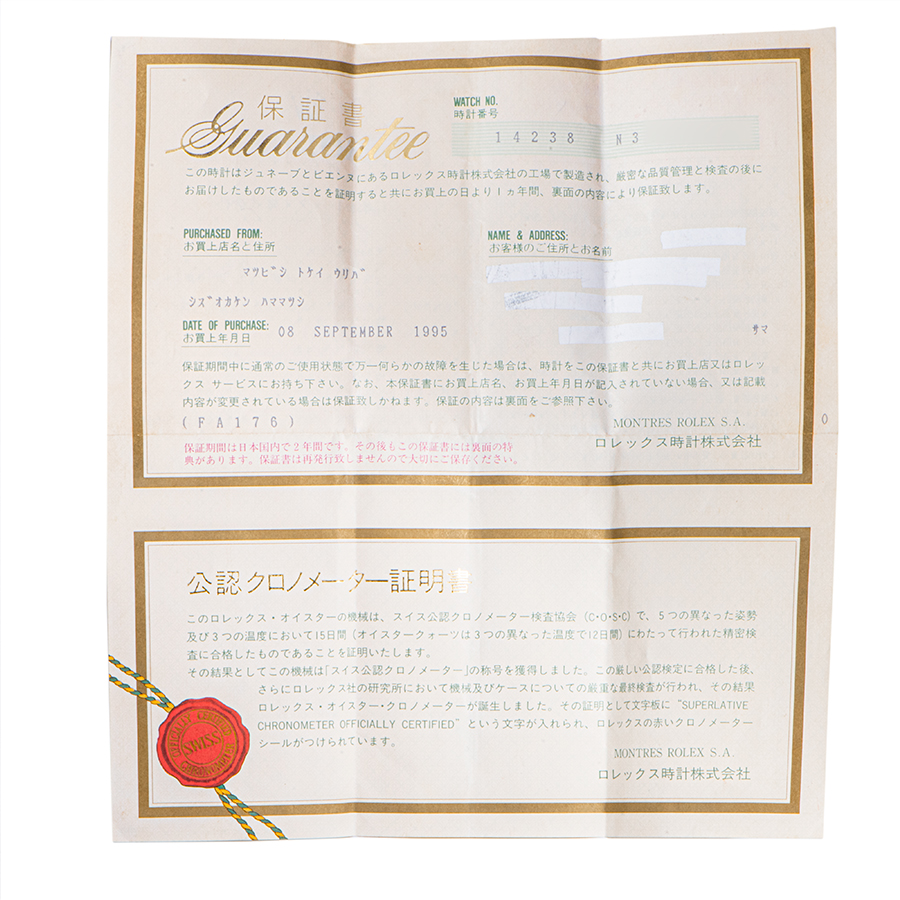 保証書
Guarantee
WATCH NO.
時計番号
14238 N3
この時計はジュネーブとビエンヌにあるロレックス時計株式会社の工場で製造され、厳密な品質管理と検査の後に
お届けしたものであることを証明すると共にお買上の日より1ヵ年間、裏面の内容により保証致します。
PURCHASED FROM:
お買上店名と住所
マツビシ トケイ ウリバ
シズオカケン ハママツシ
NAME & ADDRESS:
お客様のご住所とお名前
サマ
DATE OF PURCHASE:
お買上年月日
08 SEPTEMBER 1995
保証期間中に通常のご使用状態で万一何らかの故障を生じた場合は、時計をこの保証書と共にお買上店又はロレッ
クス サービスにお持ち下さい。なお、本保証書にお買上店名、お買上年月日が記入されていない場合、又は記載
内容が変更されている場合は保証致しかねます。保証の内容は裏面をご参照下さい。
(FA176)
MONTRES ROLEX S.A.
ロレックス時計株式会社
0
保証期間は日本国内で2年間です。その後もこの保証書には裏面の特
典があります。保証書は再発行致しませんので大切にご保存ください。
公認クロノメーター証明書
このロレックス・オイスターの機械は、スイス公認クロノメーター検査協会(C・O・S・C)で、5つの異なった姿勢
及び3つの温度において15日間(オイスタークォーツは3つの異なった温度で12日間)にわたって行われた精密検
査に合格したものであることを証明いたします。
その結果としてこの機械は「スイス公認クロノメーター」の称号を獲得しました。この厳しい公認検定に合格した後、
さらにロレックス社の研究所において機械及びケースについての厳重な最終検査が行われ、その結果
ロレックス・オイスター・クロノメーターが誕生しました。その証明として文字板に "SUPERLATIVE
CHRONOMETER OFFICIALLY CERTIFIED" という文字が入れられ、ロレックスの赤いクロノメーター
シールがつけられています。
OFFICIALLY CERTIFIED
SWISS
CHRONOMETER
MONTRES ROLEX S.A.
ロレックス時計株式会社